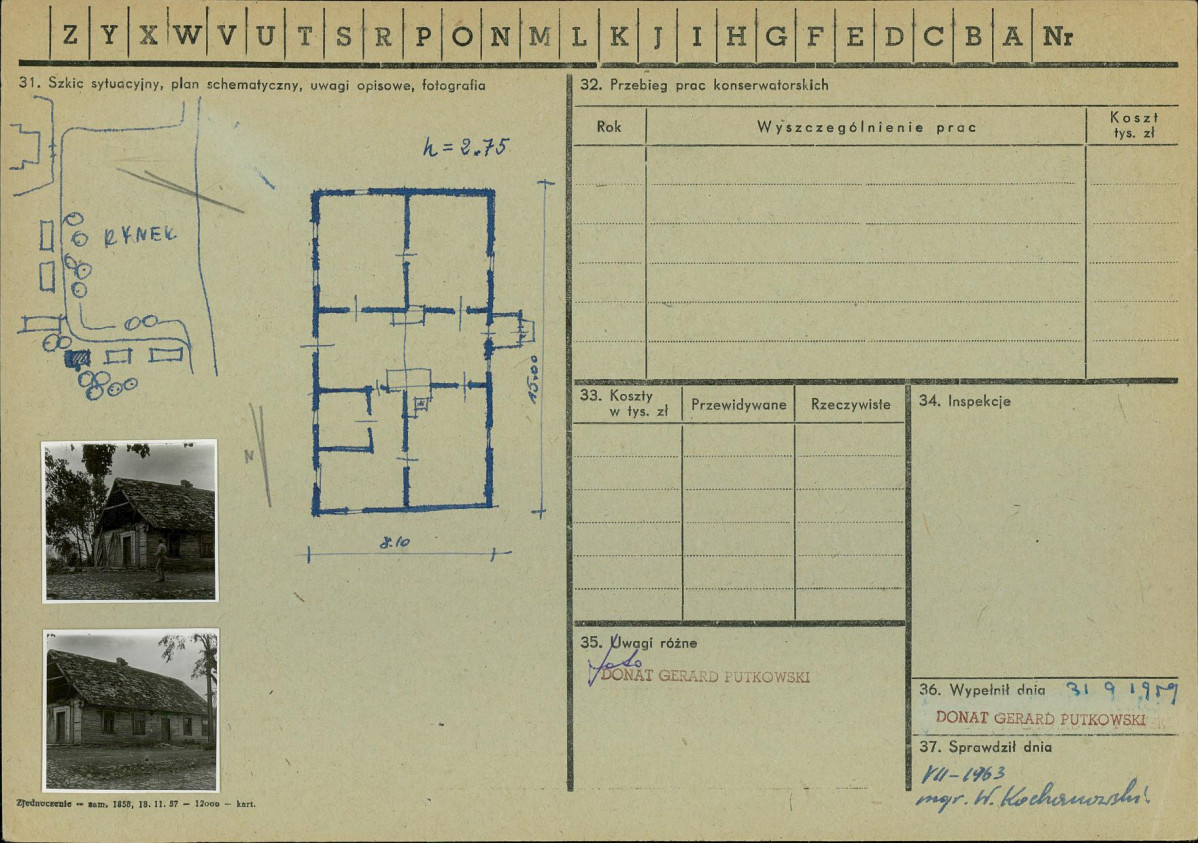 Z Y X W V U T S R P O N M L K J I H G F E D C B A Nr
31. Szkic sytuacyjny, plan schematyczny, uwagi opisowe, fotografia
h = 2.75
RYNEK
15.00
8.10
N
Zjednoczenie — zam. 1858, 18. 11. 57 — 12000 — kart.
32. Przebieg prac konserwatorskich
Rok
Wyszczególnienie prac
Koszt
tys. zł
33. Koszty
w tys. zł
Przewidywane
Rzeczywiste
34. Inspekcje
35. Uwagi różne
Foto
DONAT GERARD PUTKOWSKI
36. Wypełnił dnia 31 9 1959
DONAT GERARD PUTKOWSKI
37. Sprawdził dnia
VII-1963
mgr. W. Kochanowski